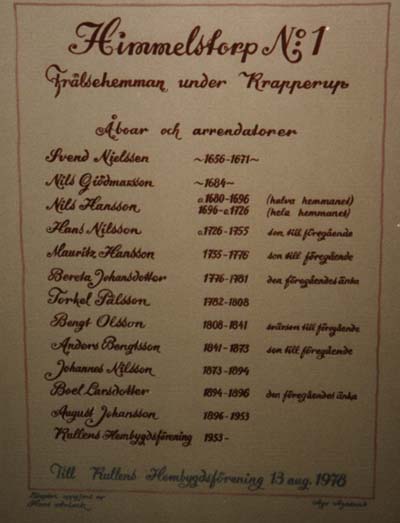 Himmelstorp No: 1
Frälsehemman under Krapperup
Åboar och arrendatorer
Svend Nielssen ~1656-1671~
Nils Giödmansson ~1684~
Nils Hansson c.1680-1696 (halva hemmanet)
1696-c.1726 (hela hemmanet)
Hans Nilsson c.1726-1755 son till föregående
Mauritz Hansson 1755-1776 son till föregående
Bereta Johansdotter 1776-1781 den föregåendes änka
Torkel Pålsson 1782-1808
Bengt Olsson 1808-1841 svärson till föregående
Anders Bengtsson 1841-1873 son till föregående
Johannes Nilsson 1873-1894
Boel Larsdotter 1894-1896 den föregåendes änka
August Johansson 1896-1953
Kullens Hembygdsförening 1953-
Till Kullens Hembygdsförening 13 aug. 1978